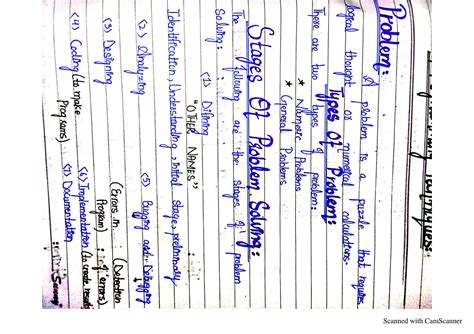 Problem:
A problem is a puzzle that requires
logical thought or numerical calculations.
Types Of Problem:
There are two types of problem:
* Numeric Problems
* General Problems
Stages Of Problem Solving:
The following are the stages of problem
Solving:
(1) Difining
"OTHER NAMES"
Identification, Understanding, initial Stage, preliminary
(2) Analyzing
(3) Designing
(4) Coding (to make
Programs)
(5) Bugging and Debugging
(Errors in Program) (Detection of errors)
(6) Implementation (to create results)
(7) Documentation
Scanned with CamScanner